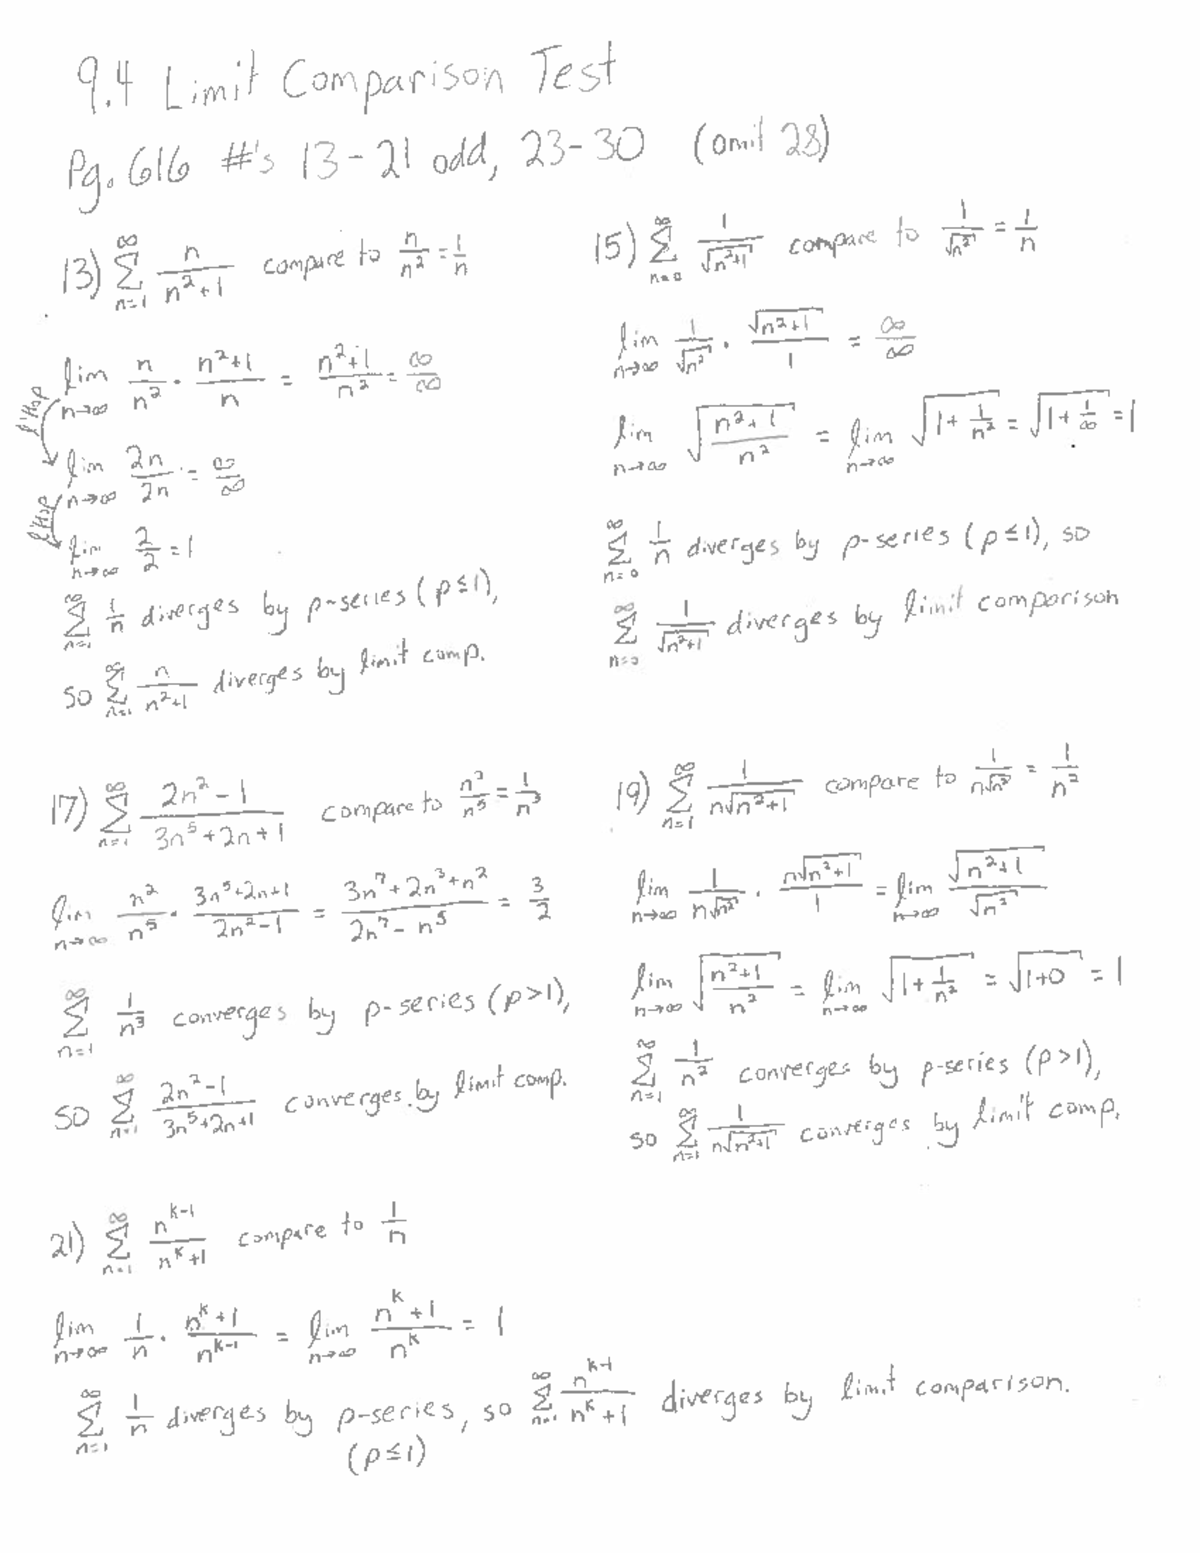 9.4 Limit Comparison Test
Pg. 616 #'s 13-21 odd, 23-30 (omit 28)
13) ∑_{n=1}^{∞} n/(n²+1) compare to n/n² = 1/n
lim_{n→∞} n/n² · (n²+1)/n = (n²+1)/n² = ∞/∞
l'Hop
lim_{n→∞} 2n/2n = ∞/∞
l'Hop
lim_{n→∞} 2/2 = 1
∑_{n=1}^{∞} 1/n diverges by p-series (p≤1),
so ∑_{n=1}^{∞} n/(n²+1) diverges by limit comp.
15) ∑_{n=0}^{∞} 1/√(n²+1) compare to 1/√(n²) = 1/n
lim_{n→∞} 1/√(n²) · √(n²+1)/1 = ∞/∞
lim_{n→∞} √((n²+1)/n²) = lim_{n→∞} √(1+1/n²) = √(1+1/∞) = 1
∑_{n=0}^{∞} 1/n diverges by p-series (p≤1), so
∑_{n=0}^{∞} 1/√(n²+1) diverges by limit comparison
17) ∑_{n=1}^{∞} (2n²-1)/(3n⁵+2n+1) compare to n²/n⁵ = 1/n³
lim_{n→∞} n²/n⁵ · (3n⁵+2n+1)/(2n²-1) = (3n⁷+2n³+n²)/(2n⁷-n⁵) = 3/2
∑_{n=1}^{∞} 1/n³ converges by p-series (p>1),
so ∑_{n=1}^{∞} (2n²-1)/(3n⁵+2n+1) converges by limit comp.
19) ∑_{n=1}^{∞} 1/(n√(n²+1)) compare to 1/(n√(n²)) = 1/n²
lim_{n→∞} 1/(n√(n²)) · n√(n²+1)/1 = lim_{n→∞} √(n²+1)/√(n²)
lim_{n→∞} √((n²+1)/n²) = lim_{n→∞} √(1+1/n²) = √(1+0) = 1
∑_{n=1}^{∞} 1/n² converges by p-series (p>1),
so ∑_{n=1}^{∞} 1/(n√(n²+1)) converges by limit comp.
21) ∑_{n=1}^{∞} n^{k-1}/(n^k+1) compare to 1/n
lim_{n→∞} 1/n · (n^k+1)/n^{k-1} = lim_{n→∞} (n^k+1)/n^k = 1
∑_{n=1}^{∞} 1/n diverges by p-series, so ∑_{n=1}^{∞} n^{k-1}/(n^k+1) diverges by limit comparison.
(p≤1)